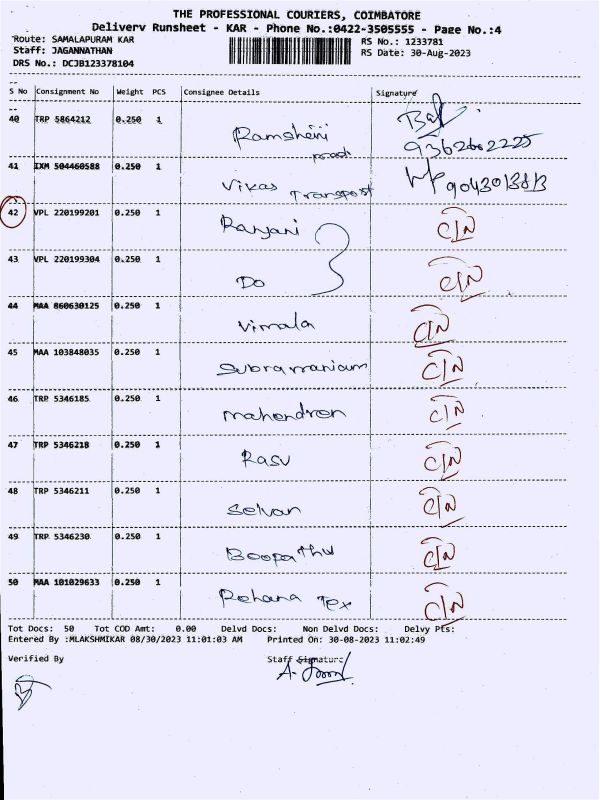 THE PROFESSIONAL COURIERS, COIMBATORE
Delivery Runsheet - KAR - Phone No.:0422-3505555 - Page No.:4
Route: SAMALAPURAM KAR
RS No.: 1233781
Staff: JAGANNATHAN
RS Date: 30-Aug-2023
DRS No.: DCJB123378104
S No Consignment No Weight PCS Consignee Details Signature
40 TRP 5864212 0.250 1
9362602225
41 IXM 504460588 0.250 1 Vikas Transport
42 VPL 220199201 0.250 1 Ranjani C/N
43 VPL 220199304 0.250 1 Do C/N
44 MAA 860630125 0.250 1 Vimala C/N
45 MAA 103848035 0.250 1 Subramaniam C/N
46 TRP 5346185 0.250 1 mahendron C/N
47 TRP 5346218 0.250 1 Rasu C/N
48 TRP 5346211 0.250 1 Selvan C/N
49 TRP 5346230 0.250 1 Boopathy C/N
50 MAA 101029633 0.250 1 Rohana Tex C/N
Tot Docs: 50 Tot COD Amt: 0.00 Delvd Docs: Non Delvd Docs: Delvy Pts:
Entered By :MLAKSHMIKAR 08/30/2023 11:01:03 AM Printed On: 30-08-2023 11:02:49
Verified By Staff Signature